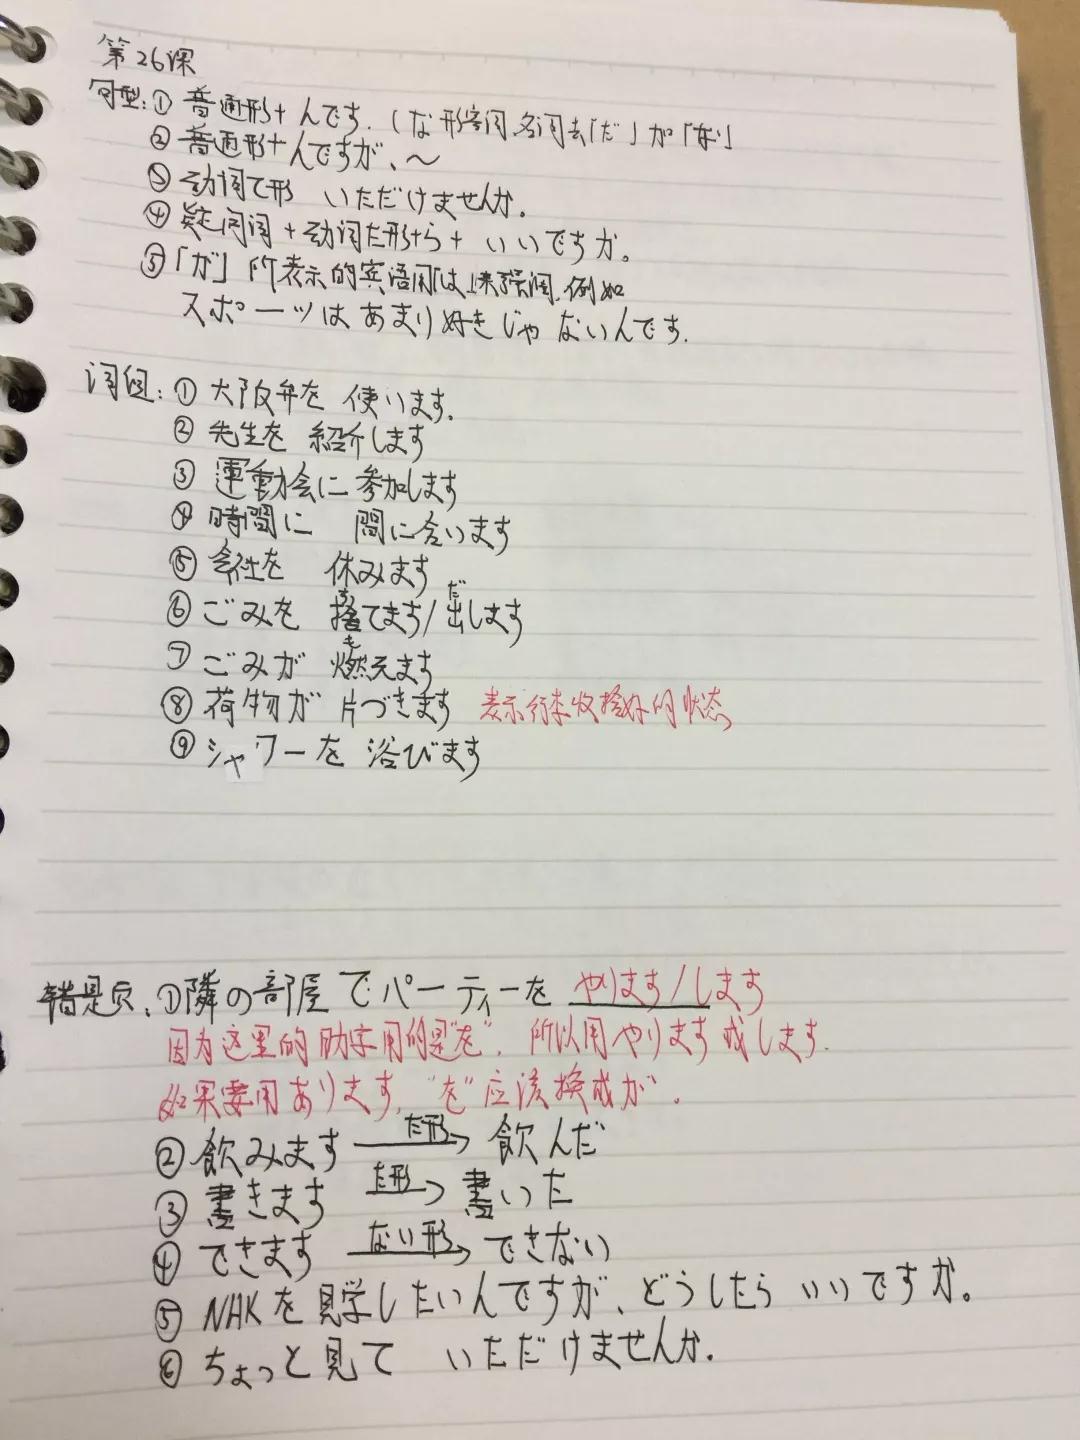 第26课
句型:① 普通形+んです.(な形容词、名词去「だ」が「な」)
② 普通形+んですが、～
③ 动词て形 いただけませんか.
④ 疑问词+动词た形+ら+いいですか。
⑤「が」所表示的宾语用「は」来强调.例如
スポーツはあまり好きじゃないんです.
词组:① 大阪弁を 使います.
② 先生を 紹介します
③ 運動会に参加します
④ 時間に 間に合います
⑤ 会社を 休みます
⑥ ごみを 捨てます/出します
す だ
⑦ ごみが 燃えます
も
⑧ 荷物が 片づきます 表示行李收拾好的状态
⑨ シャワーを 浴びます
错是点:①隣の部屋でパーティーを やります/します
因为这里的助字用的是"を",所以用やります或します.
如果要用あります,"を"应该换成が.
② 飲みます た形→ 飲んだ
③ 書きます た形→ 書いた
④ できます ない形→ できない
⑤ NHKを見学したいんですが、どうしたらいいですか。
⑥ ちょっと見て いただけませんか.